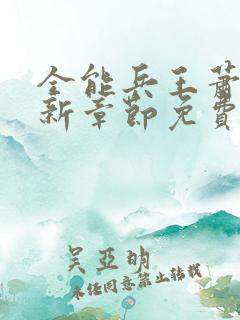 全能兵王萧
新章节免费
吴亚明
未经同意禁止转载